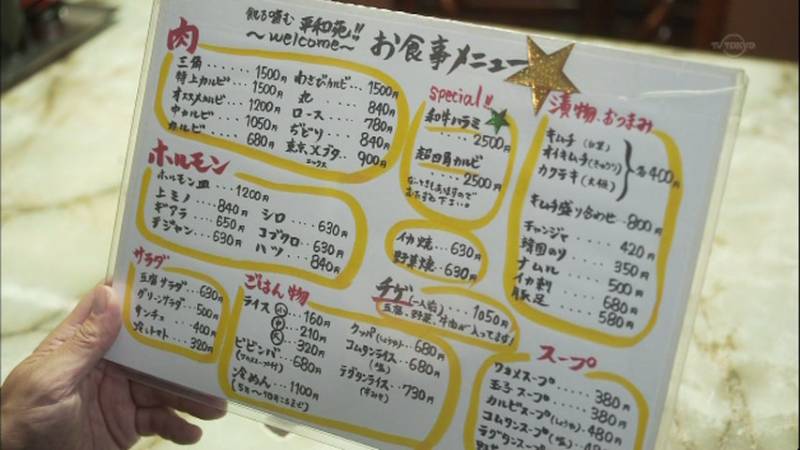 平和苑!!
〜welcome〜 お食事メニュー
肉
三角 ...... 1500円
特上カルビ ... 1500円
オススメカルビ ... 1200円
中カルビ ... 1050円
カルビ ... 680円
わさびカルビ ... 1500円
丸 ... 840円
ロース ... 780円
ぶどり ... 840円
東京Xブタ ... 900円
ホルモン
ホルモン皿 ... 1200円
上ミノ ... 840円
ギアラ ... 650円
テジャン ... 630円
シロ ... 630円
コブクロ ... 630円
ハツ ... 840円
サラダ
豆腐サラダ ... 630円
グリーンサラダ ... 500円
サンチュ ... 400円
冷しトマト ... 320円
ごはん物
ライス 小 ... 160円
中 ... 210円
大 ... 320円
ビビンバ ... 680円
(ワカメスープ付)
冷めん ... 1100円
クッパ(しょうゆ) ... 680円
コムタンライス ... 680円
(塩)
テグタンライス ... 730円
(辛みそ)
special!!
和牛ハラミ
... 2500円
超四角カルビ
... 2500円
イカ焼 ... 630円
野菜焼 ... 630円
チゲ(一人前) ... 1050円
豆腐、野菜、牛肉が入ってます!
漬物、おつまみ
キムチ(白菜)
オイキムチ(きゅうり)
カクテキ(大根)
各400円
キムチ盛り合わせ ... 800円
チャンジャ ... 420円
韓国のり ... 350円
ナムル ... 500円
イカ刺 ... 680円
豚足 ... 580円
スープ
ワカメスープ ... 380円
玉子スープ ... 380円
カルビスープ(しょうゆ) ... 480円
コムタンスープ(塩) ... 480円
TV TOKYO